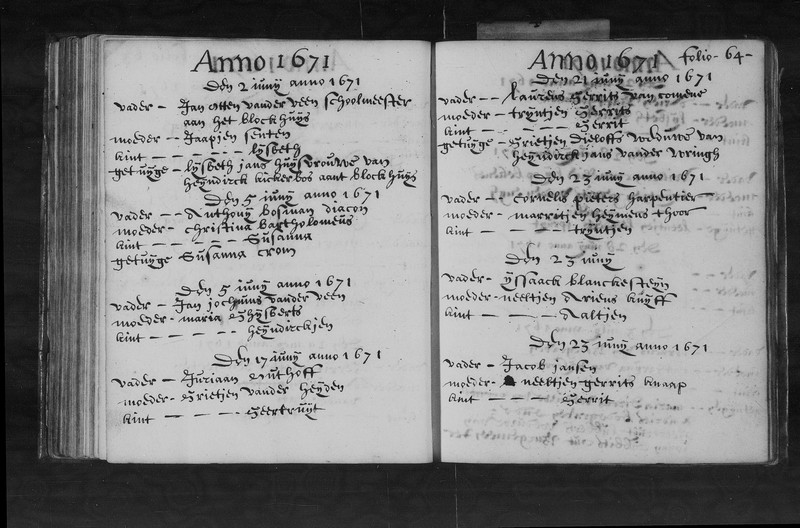 Anno 1671
Den 2 iunij anno 1671
vader - Jan otten vander veen schoolmeester
aan het blockhuijs
moeder - Jaapjen senten
kint - - - - - lijsbeth
getuijge - lijsbeth jans huijsvrouwe van
heijndirck kickerbos aant blockhuijs
Den 5 iunij anno 1671
vader - - Anthonij bosman diacon
moeder - christina bartholomeus
kint - - - - - Susanna
getuijge Susanna crom
Den 5 iunij anno 1671
vader - - Jan jochums vander veen
moeder - maria Ghijsberts
kint - - - - - heijndirckjen
Den 17 iunij anno 1671
vader - Juriaan Luthoff
moeder - Grietjen vander heijden
kint - - - - - Geertruijt
Anno 1671 folio - 64 -
Den 21 iunij anno 1671
vader - - laurens Gerrits van comene
moeder - trijntjen Gerrits
kint - - - - - Gerrit
getuijge - Grietjen dieloffs weduwe van
heijndirck jans vander wringh
Den 23 iunij anno 1671
vader - - cornelis pieters harpentier
moeder - marritjen heijmens thoor
kint - - - - trijntjen
Den 23 iunij
vader - ijssaack blanckesteijn
moeder - neeltjen Ariens kuijff
kint - - - - Aaltjen
Den 23 iunij anno 1671
vader - Jacob jansen
moeder - neeltjen gerrits knaap
kint - - - - Gerrit